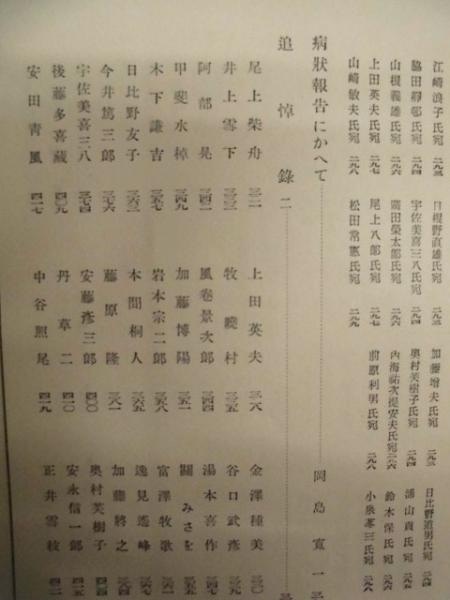 江崎浪子氏宛 二九三 日根野直雄氏宛 二九三 加藤増夫氏宛 二九三 日比野道男氏宛
脇田 氏宛 二九四 宇佐美喜三八氏宛 奥村芙樹子氏宛 二九四 浦山貞氏宛
山根義雄氏宛 二九六 廣田榮太郎氏宛 二九六 内海祐次 安夫氏宛 二九六 鈴木保氏宛
上田英夫氏宛 二九七 尾上八郎氏宛 二九七 前原利男氏宛 二九八 小泉苳三氏宛 二九八
山崎敏夫氏宛 二九八 松田常憲氏宛 二九九
病狀報告にかへて 岡島寛一
追悼錄二
尾上柴舟 三一二 上田英夫 三一八 金澤種美
井上雪下 三三三 牧曉村 三三五 谷口武彦
阿部晃 三四二 風卷景次郎 三四四 湯本喜作
甲斐水棹 三四九 加藤博陽 三五一 關みさを
木下謙吉 三五七 岩本宗二郎 富澤牧歌
日比野友子 三六三 本間桐人 三六五 逸見遙峰
今井篤三郎 三七六 藤原隆 三八一 加藤將之
宇佐美喜三八 三七四 安藤彦三郎 四〇〇 奥村芙樹子
後藤多喜藏 四〇九 丹草二 四一〇 安永信一郎
安田青風 四一七 中谷照尾 四一九 正井雪枝